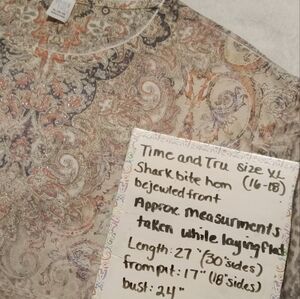 Time and Tru size XL
Shark bite hem (16-18)
bejewled front
Approx measurments
taken while laying flat
Length: 27" (30" sides)
from pit: 17" (18" sides)
bust: 24"